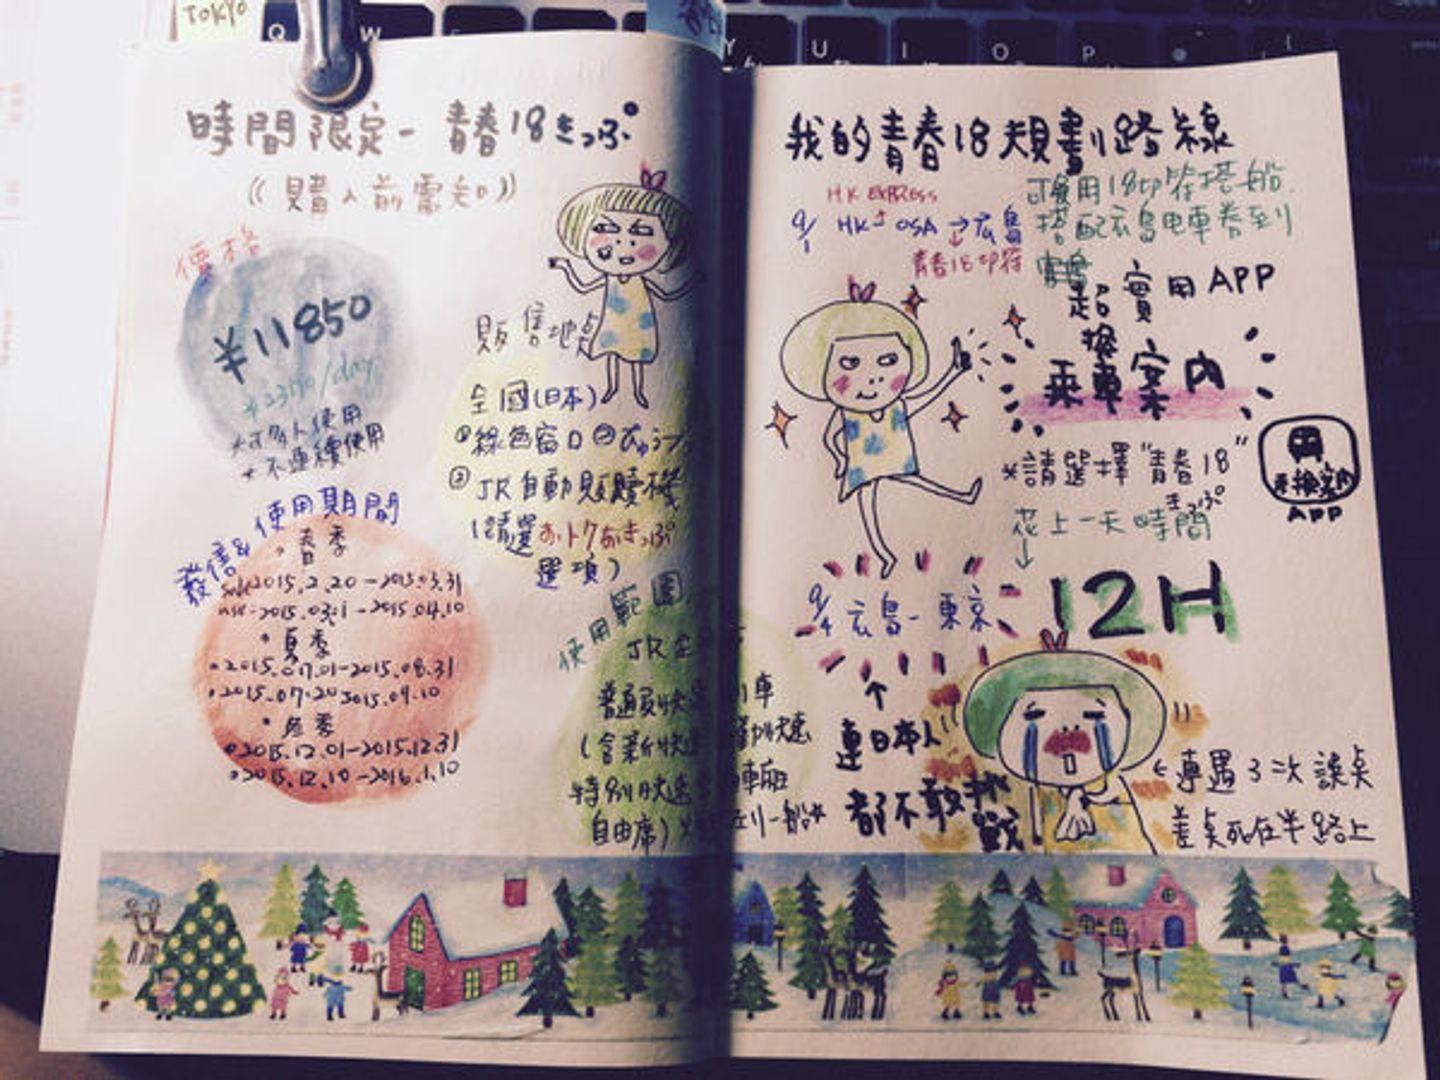 TOKYO
Q
W
Y
U
I
O
P
時間限定-青春18きっぷ
((購入前需知))
價格
¥11850
¥2370/day
*可多人使用
*不連續使用
販售地点
全國(日本)
①綠色窗口②びゅうプラ
③JR自動販賣機
(請選おトクなきっぷ
選項)
發售&使用期間
・春季
Sale2015.2.20-2015.03.31
use-2015.03.1-2015.04.10
・夏季
・2015.07.01-2015.08.31
・2015.07.20 2015.09.10
・冬季
・2015.12.01-2015.12.31
・2015.12.10-2016.1.10
使用範圍
JR全
列車
普通別快速
(含新快速
特別快速
車廂
自由席)
我的青春18規劃路線
HK EXPRESS
9/1 HK→OSA→広島
青春18切符
可使用18切符搭船
搭配広島电車券到
宮島
超實用APP
乗換案内
*請選擇"青春18
きっぷ"
乗換案内
APP
花上一天時間
↓
12H
9/4 広島-東京
↑
連日本人
都不敢挑
戰
←連遇3次誤点
差点死在半路上